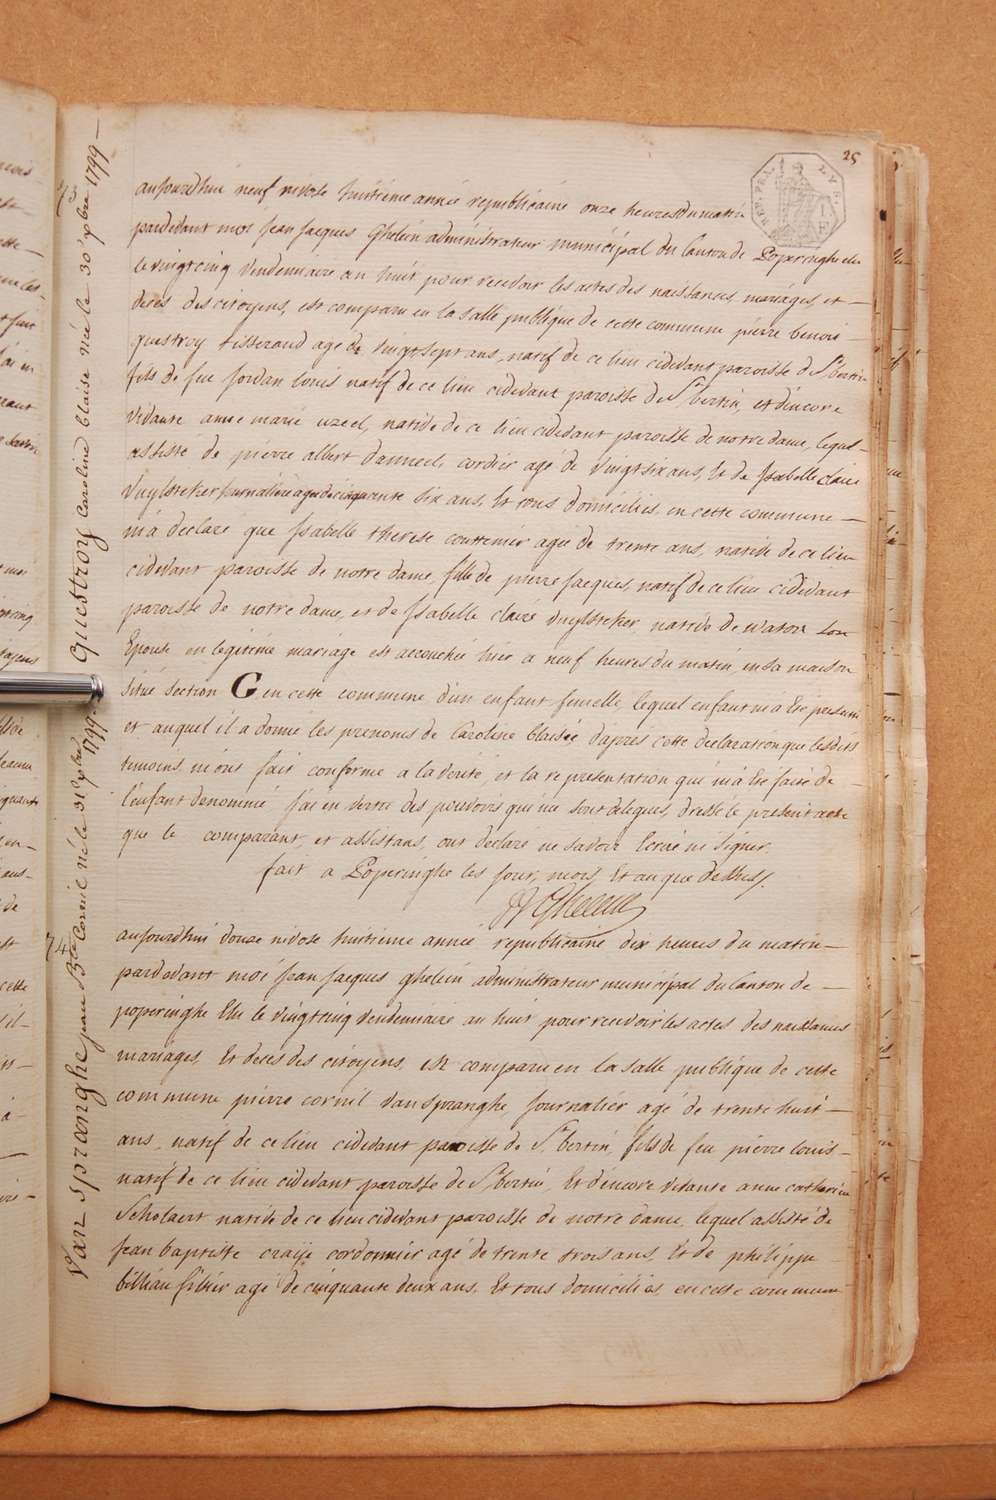 25
REP. FRA.
73
Questroy Caroline blaise née le 30 xbre 1799
aujourdhui neuf nivose huitieme année republicaine onze heures du matin
pardevant moi Jean Jacques Ghelein administrateur municipal du Canton de Poperinghe elu
le vingtcinq Vendemiaire an huit pour recevoir les actes des naissances, mariages, et —
deces des citoyens, est comparu en la salle publique de cette commune pierre benoit —
questroy tisserand agé de vingt sept ans, natif de ce lieu cidevant paroisse de St bertin
fils de feu Jordan louis natif de ce lieu cidevant paroisse de St bertin, et d'encore
vivante anne marie uzeel, native de ce lieu cidevant paroisse de notre dame, lequel —
assisté de pierre albert danneel, cordier agé de vingt six ans, Et de Isabelle claire
Vuylsteker journaliere agée de cinquante six ans, Et tous domiciliés, en cette commune —
m'a declaré que Isabelle therese couttenier agée de trente ans, native de ce lieu
cidevant paroisse de notre dame, fille de pierre Jacques, natif de ce lieu cidevant
paroisse de notre dame, et de Isabelle claire vuylsteker, native de waton son
Epouse en legitime mariage est accouchée hier a neuf heures du matin, en sa maison
située section G en cette commune d'un enfant femelle, lequel enfant m'a été presenté
et auquel il a donné les prenoms de Caroline blaise, d'apres cette declaration que lesdits
temoins m'ont fait conforme a la verité, et la representation qui m'a Eté faite de
l'enfant denommé j'ai en vertu des pouvoirs qui me sont delegués, dressé le present acte
que le comparant, et assistans, ont declaré ne savoir Ecrire ni signer,
fait a Poperinghe les jour, mois, Et an que dessus.
JJ Ghelein
74
Van Spranghe jean Bte Cornil né le 31 xbre 1799.
aujourdhui douze nivose huitieme année republicaine dix heures du matin —
pardevant moi Jean Jacques ghelein administrateur municipal du Canton de —
poperinghe Elu le vingtcinq Vendemiaire an huit pour recevoir les actes des naissances
mariages, Et deces des citoyens, est comparu en la salle publique de cette
commune pierre cornil Van spranghe, journalier agé de trente huit —
ans, natif de ce lieu cidevant paroisse de St bertin, fils de feu pierre louis —
natif de ce lieu cidevant paroisse de St bertin, Et d'encore vivante anne catherine
Scholaert native de ce lieu cidevant paroisse de notre dame, lequel assisté de
Jean baptiste craije cordonnier agé de trente trois ans, Et de philippe
billiau filtier agé de cinquante deux ans, Et tous domiciliés, en cette commune